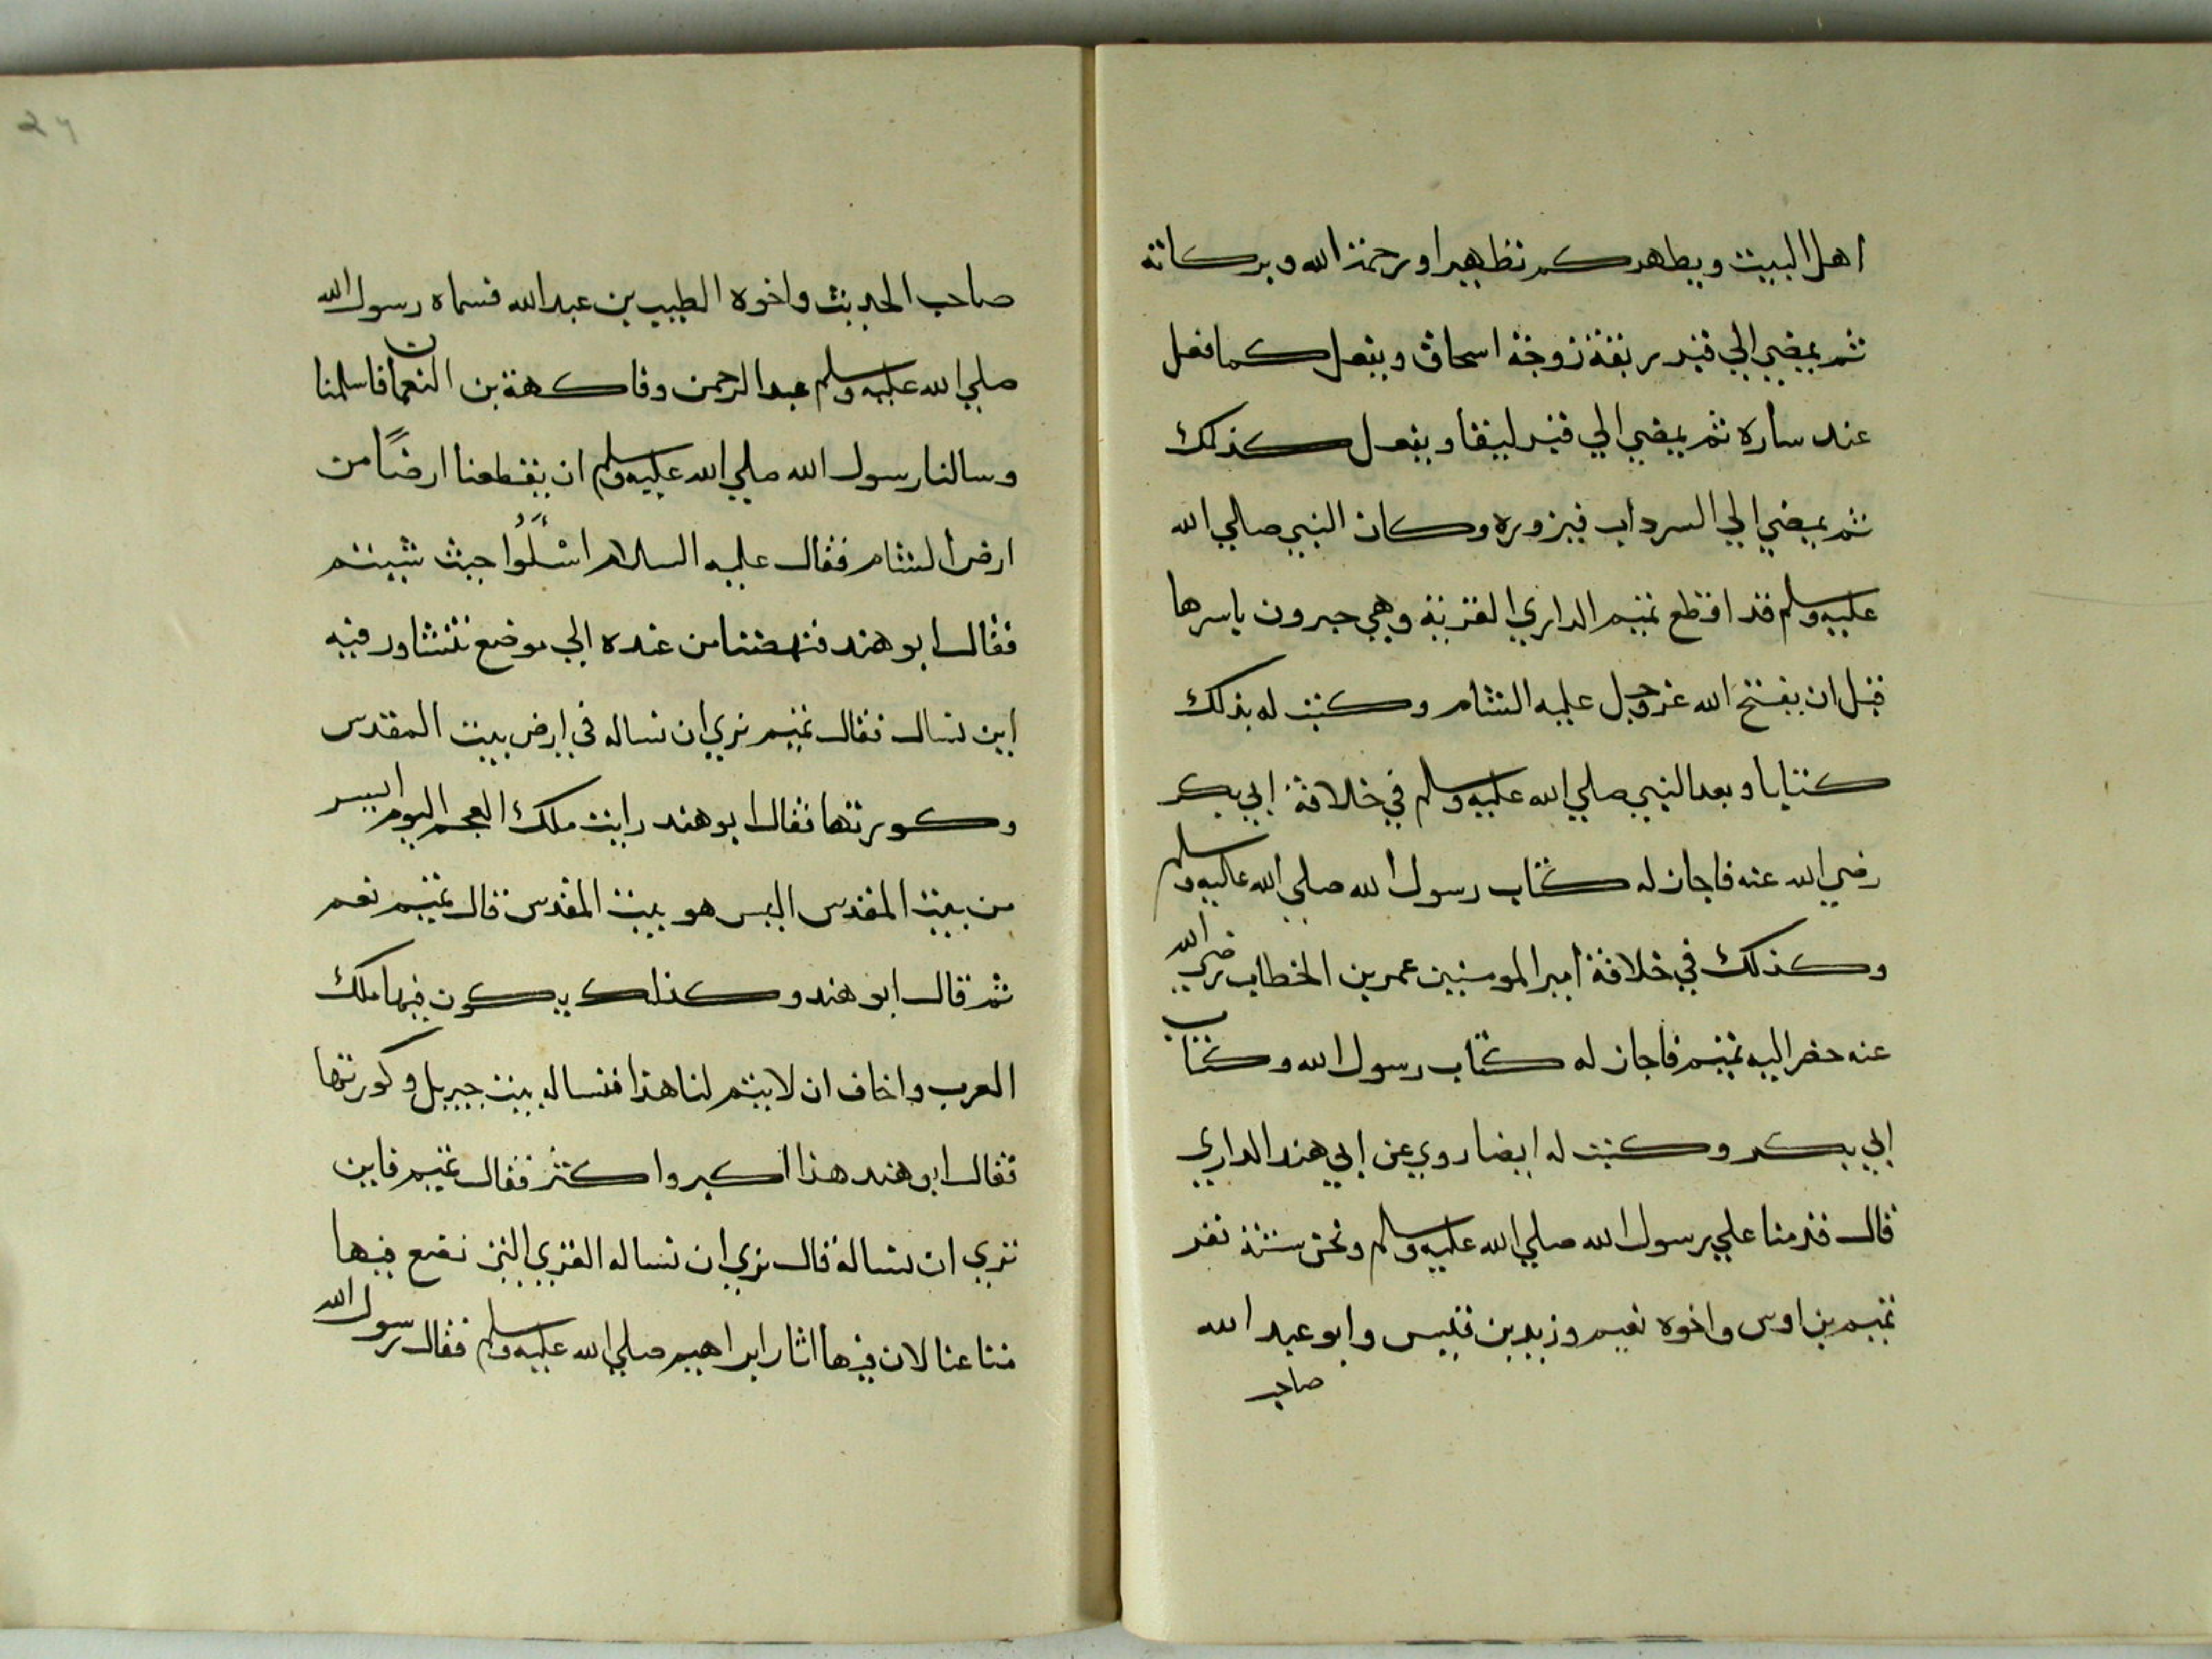 اهل البيت ويطهركم تطهيرا ورحمة الله وبركاته
ثم يمضي الي قبر ربقة زوجة اسحاق ويفعل كما فعل
عند سارة ثم يمضي الي قبر ليقا ويفعل كذلك
ثم يمضي الي السرداب فيزوره وكان النبي صلي الله
عليه وسلم قد اقطع تميم الداري القرية وهي حبرون باسرها
قبل ان يفتح الله عز وجل عليه الشام وكتب له بذلك
كتابا وبعد النبي صلي الله عليه وسلم في خلافة ابي بكر
رضي الله عنه فاجاز له كتاب رسول الله صلي الله عليه وسلم
وكذلك في خلافة امير المومنين عمر بن الخطاب رضي الله
عنه حضر اليه تميم فاجاز له كتاب رسول الله وكتاب
ابي بكر وكتب له ايضا روي عن ابي هند الداري
قال قدمنا علي رسول الله صلي الله عليه وسلم ونحن ستة نفر
تميم بن اوس واخوه نعيم وزيد بن قيس وابو عبد الله
صاحب
٢٦
صاحب الحديث واخوه الطيب بن عبد الله فسماه رسول الله
صلي الله عليه وسلم عبد الرحمن وفاكهة بن النعمان فاسلمنا
وسالنا رسول الله صلي الله عليه وسلم ان يقطعنا ارضًا من
ارض الشام فقال عليه السلام اسْلَوُا حيث شيتم
فقال ابو هند فنهضنا من عنده الي موضع نتشاور فيه
اين نسال فقال تميم نري ان نساله في ارض بيت المقدس
وكورتها فقال ابو هند رايت ملك العجم اليوم اليس
من بيت المقدس اليس هو بيت المقدس قال تميم نعم
ثم قال ابو هند وكذلك يكون فيها ملك
العرب واخاف ان لا يتم لنا هذا فنساله بيت جبريل وكورتها
فقال ابو هند هذا اكبر واكثر فقال تميم فاين
تري ان نساله قال نري ان نساله القري التي نضع فيها
متاعنا لان فيها اثار ابراهيم صلي الله عليه وسلم فقال رسول الله